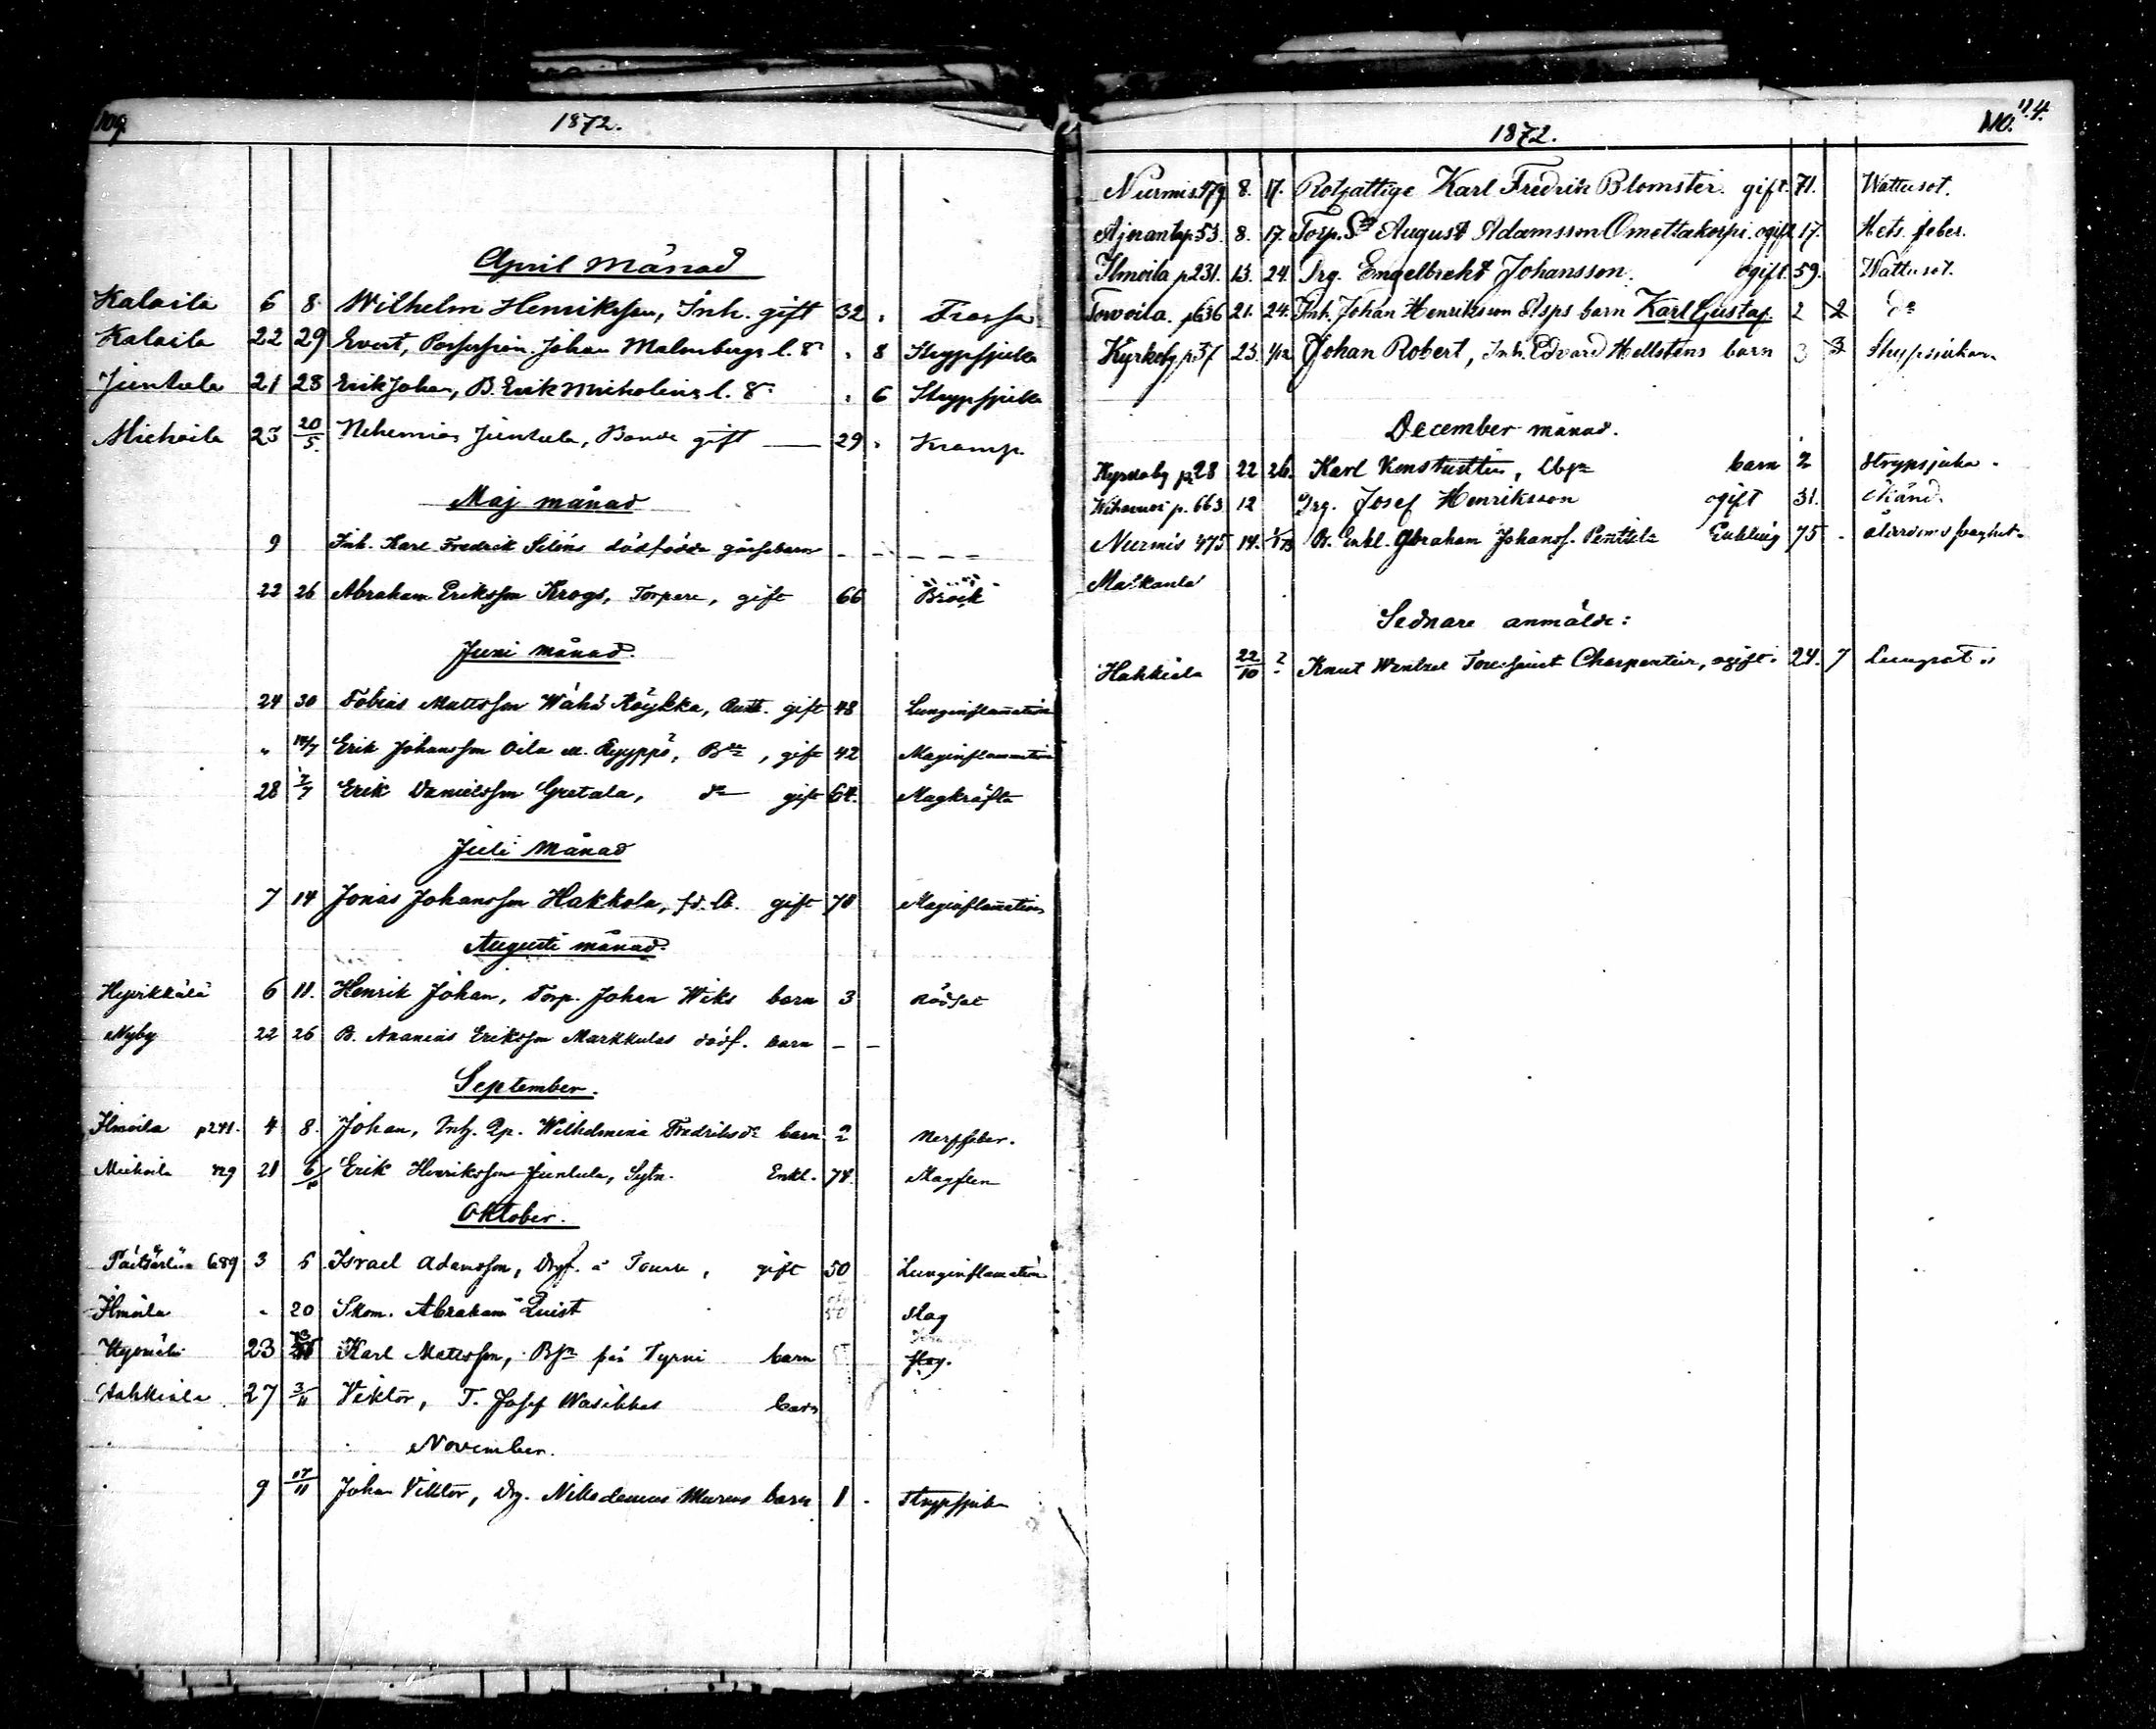 109.
1872.
April månad
Kalaila 6 8 Wilhelm Henriksson, Inh. gift 32 " Frossa
Kalaila 22 29 Evert, Johan Malmbergs l. " 8 Strypsjuka
Juntula 21 28 Erik Johan, B. Erik l. " 6 Strypsjuka
Michoila 23 20/5. Nehemias Juntula, Bonde gift — 29 " Kramp.
Maj månad
9 Inh. Karl Fredrik Seléns dödfödde gossebarn — — — — —
22 26 Abraham Eriksson Krogs, Torpare, gift 66 Bråck
Juni månad.
24 30 Tobias Mattsson Wähä Röykkä, gift 48 Lunginflamation
" 14/7 Erik Johansson Oila, gift 42 Maginflammation
28 7/7 Erik Danielsson Gretala, do gift 64. Magkräfta
Juli månad
7 14 Jonas Johansson Hakkola, fd. gift 70 Maginflamation
Augusti månad.
Hyvikkälä 6 11. Henrik Johan, Torp. Johan Wiks barn 3 Rödsot
Nyby 22 26 B. Ananias Eriksson Markkulas dödf. barn — —
September.
Ilmoila p241. 4 8. Johan, Inh. Wilhelmina Fredriksdr barn 2 Nerffeber.
Michoila 21 6/10 Erik Henriksson Juntula, Sytn. Enkl. 74. Magflen
Oktober.
689 3 6 Israel Adamsson, gift 50 Lunginflamation
Ilmoila " 20 Skom. Abraham Quist Slag
23 Karl Mattsson, på Tyrni barn slag.
Hahkiala 27 3/11 Viktor, T. Josef barn
November.
9 17/11 Johan Viktor, Drg. Nikodemus barn 1 - Strypsjuka
1872.
110. 114.
Nurmis 479 8. 17. Rotfattige Karl Fredrik Blomster. gift. 71. Wattusot.
p53. 8. 17. Torp. Sn August Adamsson Omettakorpi. ogift 17. Hets. feber.
Ilmoila p231. 13. 24. Drg. Engelbrekt Johansson. ogift. 59. Wattusot.
Torvoila. p636 21. 24. Inh. Johan Henriksson barn Karl Gustaf. 2 2 do
Kyrkoby p37 23. 1/12 Johan Robert, Inh. Edvard Hellstens barn 3 3 Strypsjukan
December månad.
Kyrkoby p28 22 26. Karl Konstantin, barn 2 Strypsjuka.
p. 663 12 Drg. Josef Henriksson ogift 31. Okänd.
Nurmis 475 14. B. Enkl. Abraham Johanss. Pentzil Enkling 75 - ålderdomssvaghet.
Maskanla
Sednare anmälde:
Hahkiala 22/10 ? Knut Wentzel Toussaint Charpentier, ogift. 24. 7 Lungsot